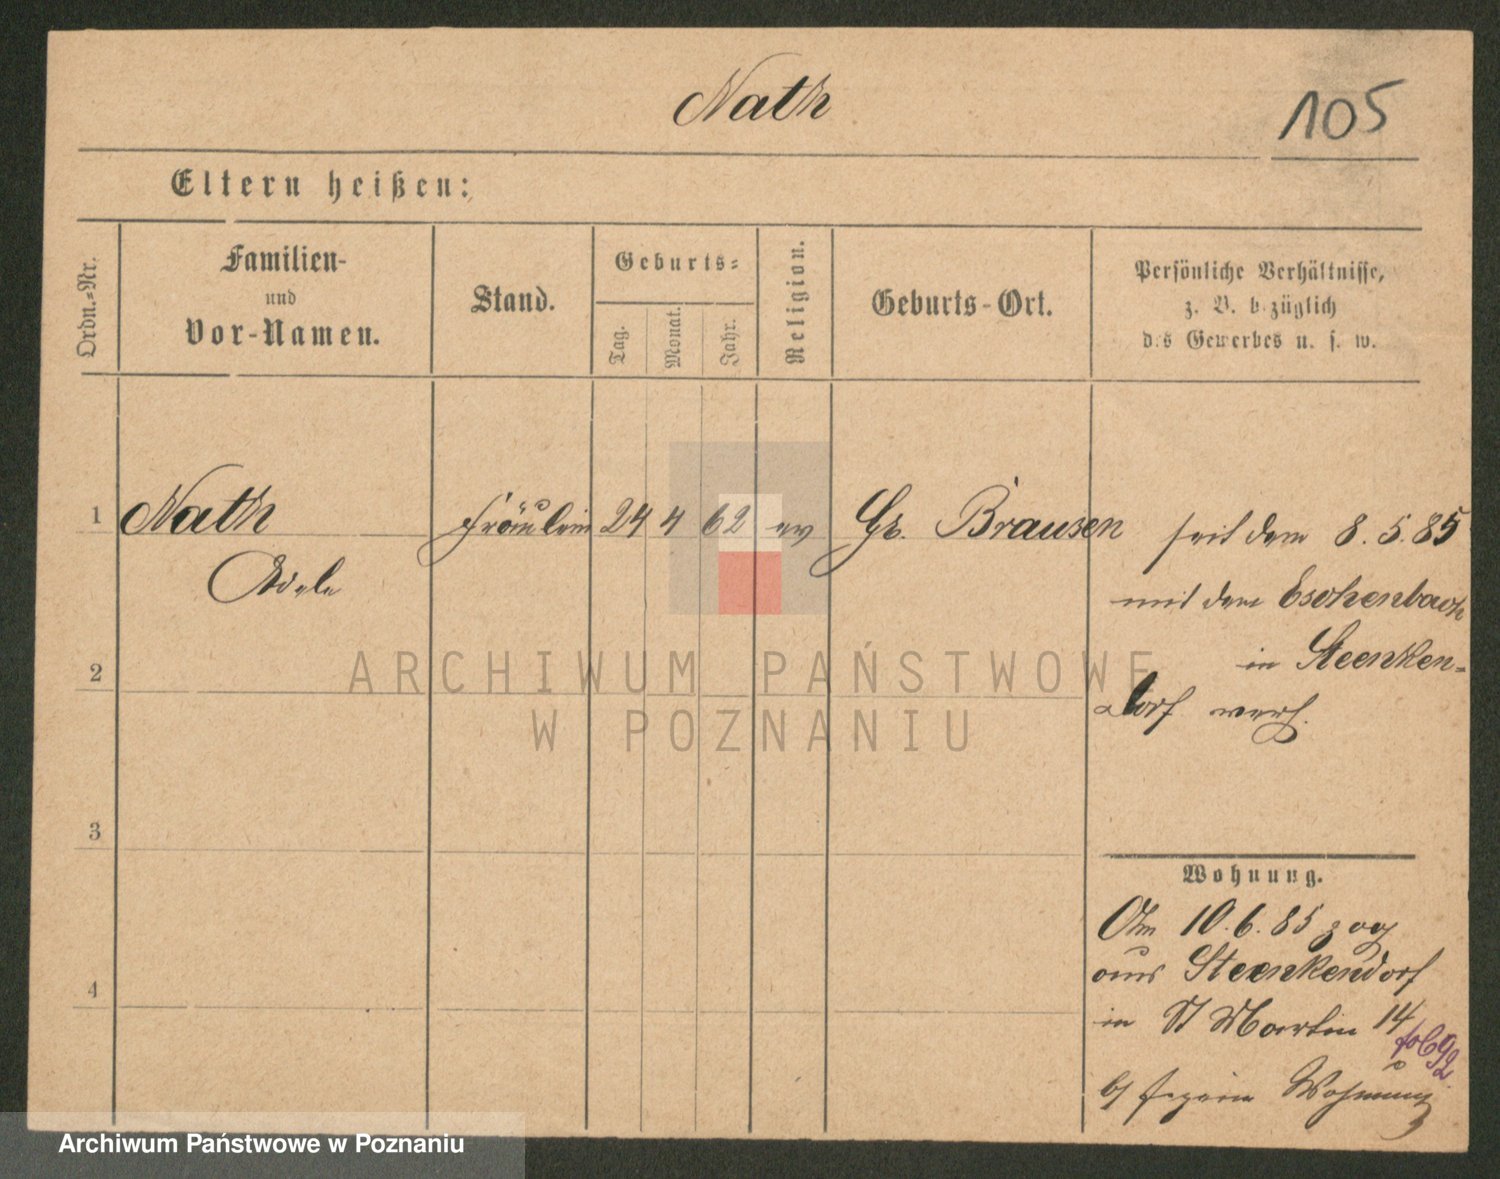 Nath
105
Eltern heißen:
Ordn.-Nr.
Familien-
und
Vor-Namen.
Stand.
Geburts-
Tag.
Monat.
Jahr.
Religion.
Geburts-Ort.
Persönliche Verhältnisse,
z. B. bezüglich
des Gewerbes u. s. w.
1 Nath Fräulein 24 4 62 ev Gr. Brausen seit dem 8.5.85
Adele mit dem Eschenbach
in Steenken-
dorf verh.
2
3
4
Wohnung.
Am 10.6.85 zog
aus Steenkendorf
in St Martin 14
b/ Wohnung
ARCHIWUM PAŃSTWOWE
W POZNANIU
Archiwum Państwowe w Poznaniu